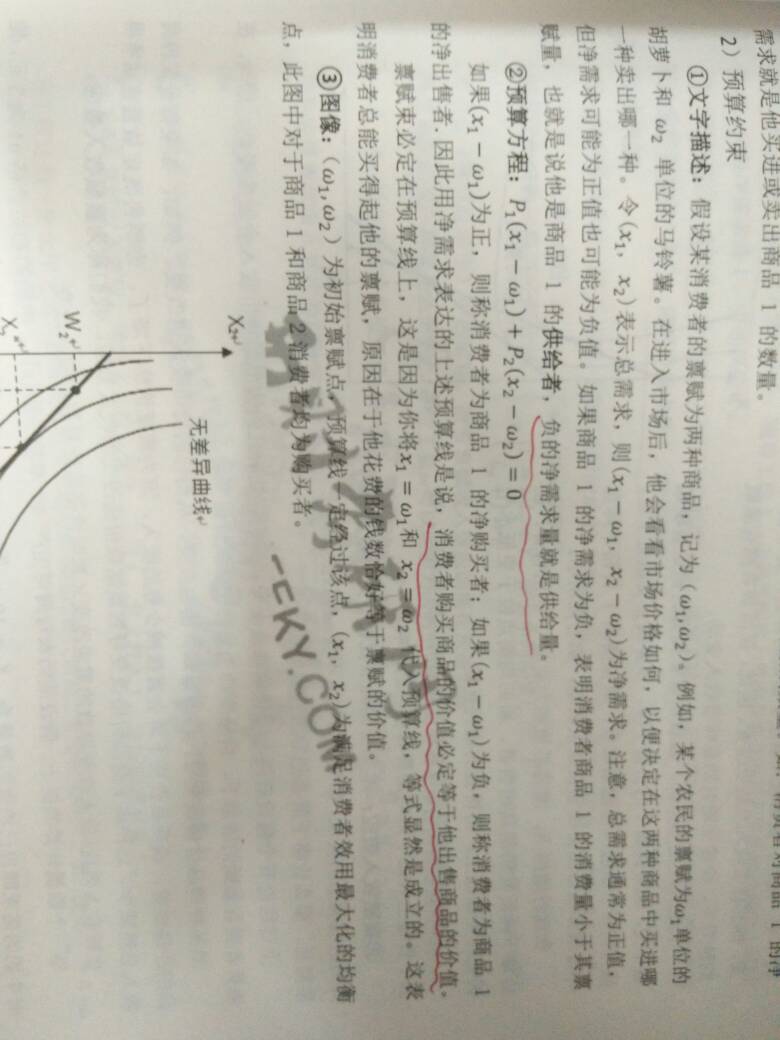 需求就是他买进或卖出商品 1 的数量。
2）预算约束
①文字描述：假设某消费者的禀赋为两种商品，记为（ω₁,ω₂）。例如，某个农民的禀赋为ω₁单位的
胡萝卜和 ω₂ 单位的马铃薯。在进入市场后，他会看看市场价格如何，以便决定在这两种商品中买进哪
一种卖出哪一种。令(x₁，x₂)表示总需求，则(x₁−ω₁，x₂−ω₂)为净需求。注意，总需求通常为正值，
但净需求可能为正值也可能为负值。如果商品 1 的净需求为负，表明消费者商品 1 的消费量小于其禀
赋量，也就是说他是商品 1 的供给者，负的净需求量就是供给量。
②预算方程：P₁(x₁−ω₁)+P₂(x₂−ω₂)=0
如果(x₁−ω₁)为正，则称消费者为商品 1 的净购买者；如果(x₁−ω₁)为负，则称消费者为商品 1
的净出售者.因此用净需求表达的上述预算线是说，消费者购买商品的价值必定等于他出售商品的价值。
禀赋束必定在预算线上，这是因为你将x₁=ω₁和 x₂=ω₂ 代入预算线，等式显然是成立的。这表
明消费者总能买得起他的禀赋，原因在于他花费的钱数恰好等于禀赋的价值。
③图像：（ω₁,ω₂）为初始禀赋点，预算线一定经过该点，(x₁，x₂)为满足消费者效用最大化的均衡
点，此图中对于商品 1 和商品 2 消费者均为购买者。
X₂
无差异曲线
W₂